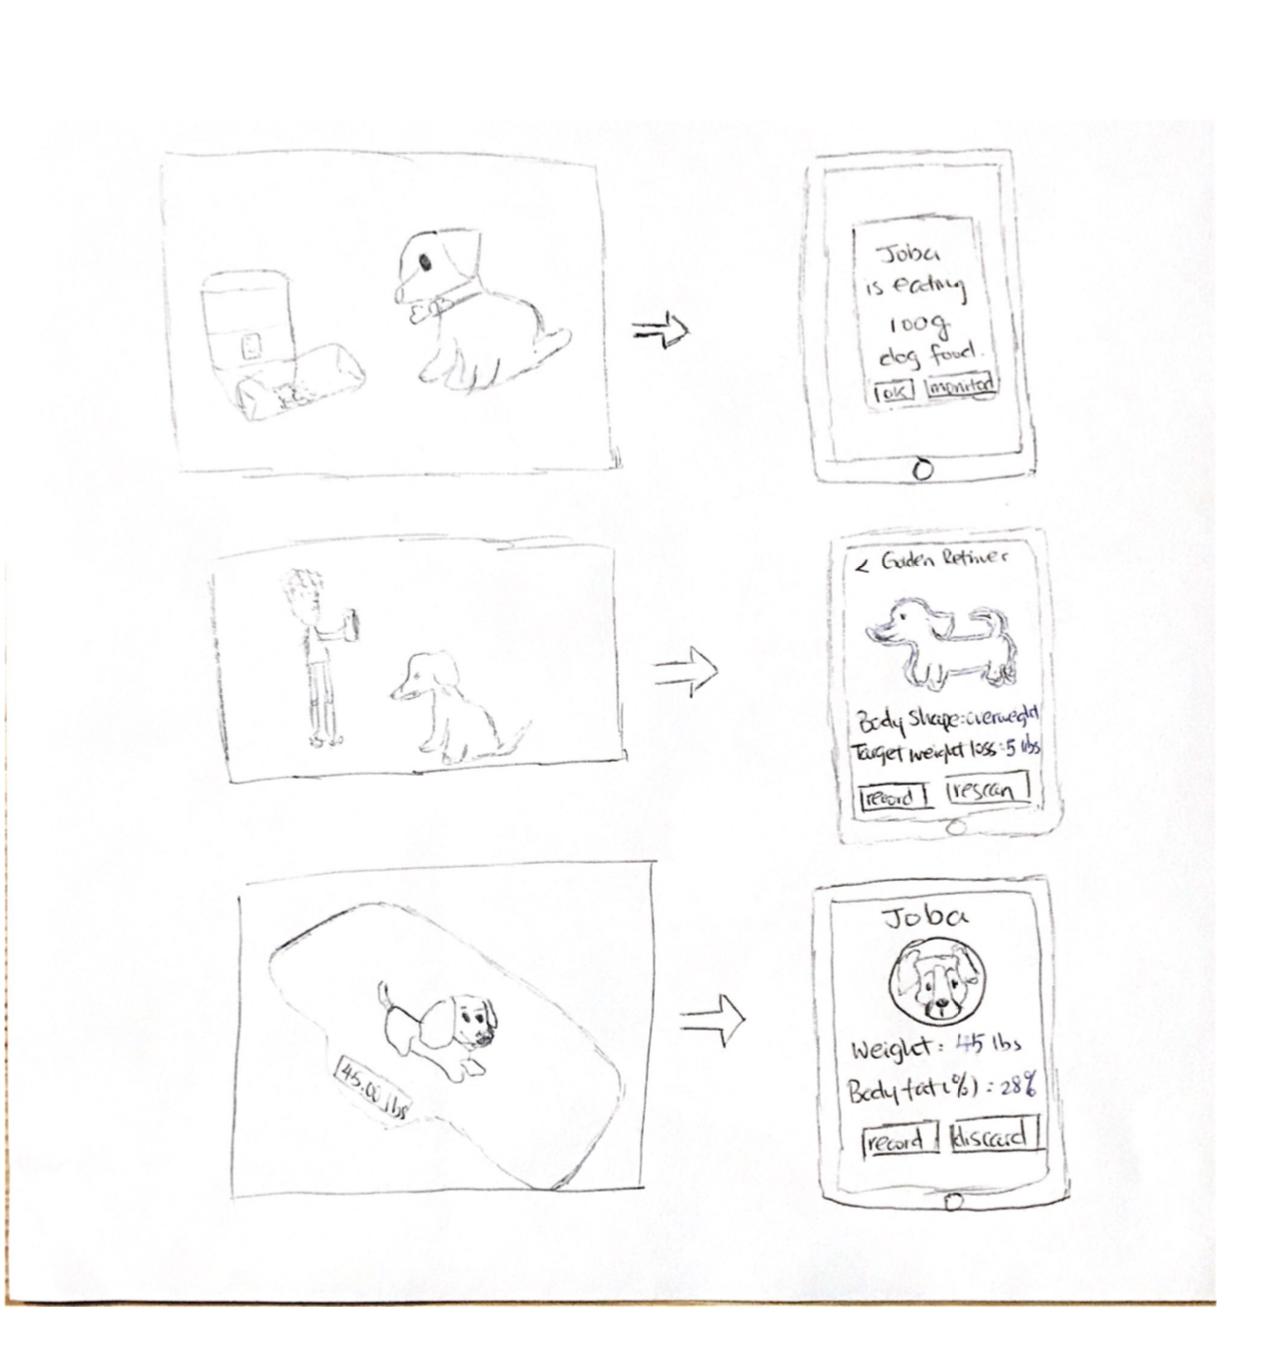 Joba
is eating
100g
dog food.
OK monitod
< Golden Retriver
Body shape: overweight
Target weight loss: 5 lbs
record rescan
45.00 lbs
Joba
Weight: 45 lbs
Body fat (%): 28%
record discard